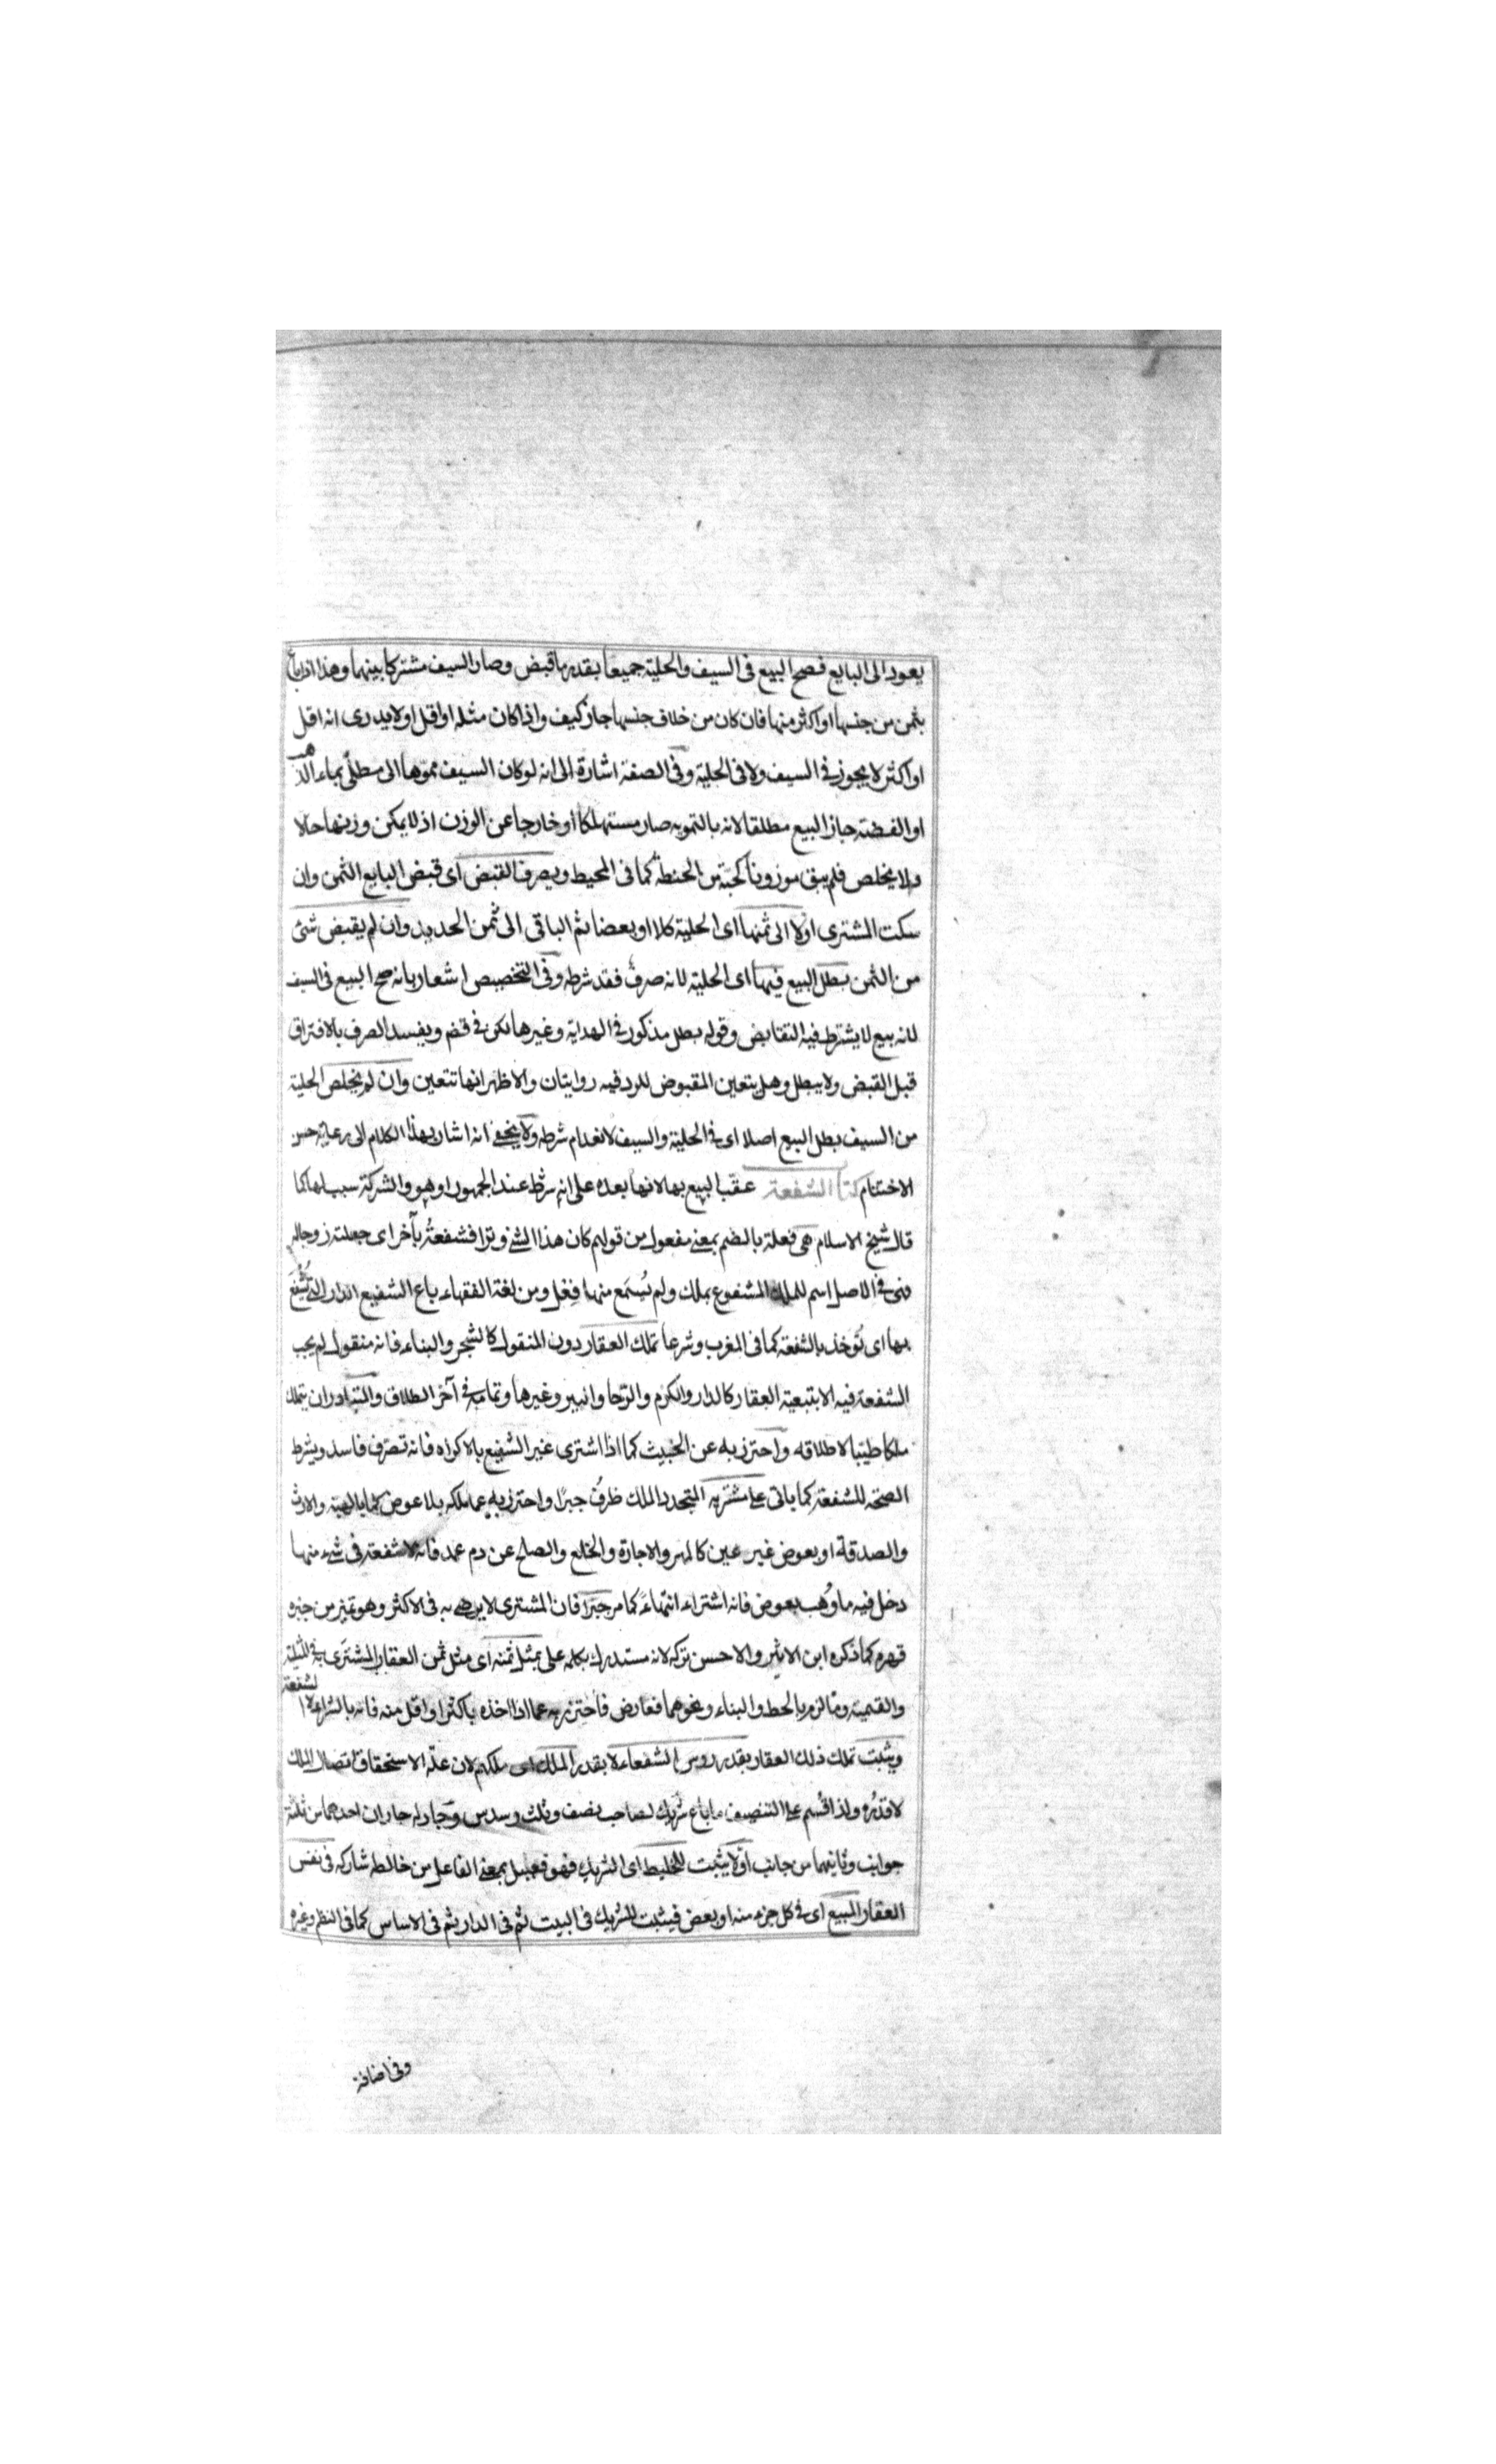 يعود الى البايع فصح البيع فى السيف والحلية جميعا بقدر ما قبض وصار السيف مشتركا بينهما وهذا اذا باع
بثمن من جنسها او اكثر منها فان كان من خلاف جنسها جاز كيف واذا كان مثله او اقل او لا يدرى انه اقل
او اكثر لا يجوز فى السيف ولا فى الحلية وفى الصفة اشارة الى انه لو كان السيف مموها اى مطلى بماء الذهب
او الفضة جاز البيع مطلقا لانه بالتمويه صار مستهلكا او خارجا عن الوزن اذ لا يمكن وزنها حالا
ولا يخلص فلم يبق موزونا كحبة من الحنطة كما فى المحيط ويصرف القبض اى قبض البايع الثمن وان
سكت المشترى اولا الى ثمنها اى الحلية كلا او بعضا ثم الباقى الى ثمن الحديد وان لم يقبض شئ
من الثمن بطل البيع فيها اى الحلية لانه صرف فقد شرطه وفى التخصيص اشعار بانه صح البيع فى السيف
لانه بيع لا يشترط فيه التقابض وقوله بطل مذكور فى الهداية وغيرها لكن فى ويفسد الصرف بالافتراق
قبل القبض ولا يبطل وهل يتعين المقبوض للرد فيه روايتان والاظهر انها تتعين وان لم يخلص الحلية
من السيف بطل البيع اصلا اى فى الحلية والسيف لانعدام شرطه ولا يخفى انه اشار بهذا الكلام الى رعاية حسن
الاختتام كتاب الشفعة عقب البيع بها لانها بعده على انه شرط عند الجمهور او هو والشركة سبب لها كما
قال شيخ الاسلام هى فعلة بالضم بمعنى مفعول من قولهم كان هذا الشئ وترا فشفعته بآخر اى جعلته زوجا له
فهى فى الاصل اسم للملك المشفوع بملك ولم يسمع منها فعل ومن لغة الفقهاء باع الشفيع الدار التى تشفع
بها اى تؤخذ بالشفعة كما فى المغرب وشرعا تملك العقار دون المنقول كالشجر والبناء فانه منقول لم يجب
الشفعة فيه الا بتبعية العقار كالدار والكرم والرحا والبير وغيرها وتمامه فى آخر الطلاق والمتبادر ان يتملك
ملكا طيبا لاطلاقه واحترز به عن الخبيث كما اذا اشترى غير الشفيع بالاكراه فانه تصرف فاسد ويشرط
الصحة للشفعة كما ياتى على مشتريه المتجدد الملك ظرف جبرا واحترز به عما ملكه بلا عوض كما بالهبة والارث
والصدقة او بعوض غير عين كالمهر والاجارة والخلع والصلح عن دم عمد فانه لا شفعة فى شئ منها
دخل فيه ما وهب بعوض فانه اشتراء انتهاء كما مر جبرا فان المشترى لا يرضى به فى الاكثر وهو تميز من جبره
قهره كما ذكره ابن الاثير والاحسن تركه لانه مستدرك بكلمة على بمثل ثمنه اى مثل ثمن العقار المشترى به فى المثلية
والقيمية وما لزم بالحط والبناء ونحوهما فعارض فاحترز به عما اذا اخذه باكثر او اقل منه فانه بالشراء لا الشفعة
ويثبت تملك ذلك العقار بقدر روس الشفعاء لا بقدر الملك اى ملكهم لان علة الاستحقاق اتصال الملك
لا قدره ولذا قسم على التنصيف ما باع شريك لصاحب نصف وثلث وسدس وجار له جاران احدهما من ثلثة
جوانب وثانيهما من جانب اولا يثبت للخليط اى الشريك فهو فعيل بمعنى الفاعل من خالطه شاركه فى نفس
العقار المبيع اى فى كل جزء منه او بعض فيثبت للشريك فى البيت ثم فى الدار ثم فى الاساس كما فى النظم وغيره
وفى اضافة